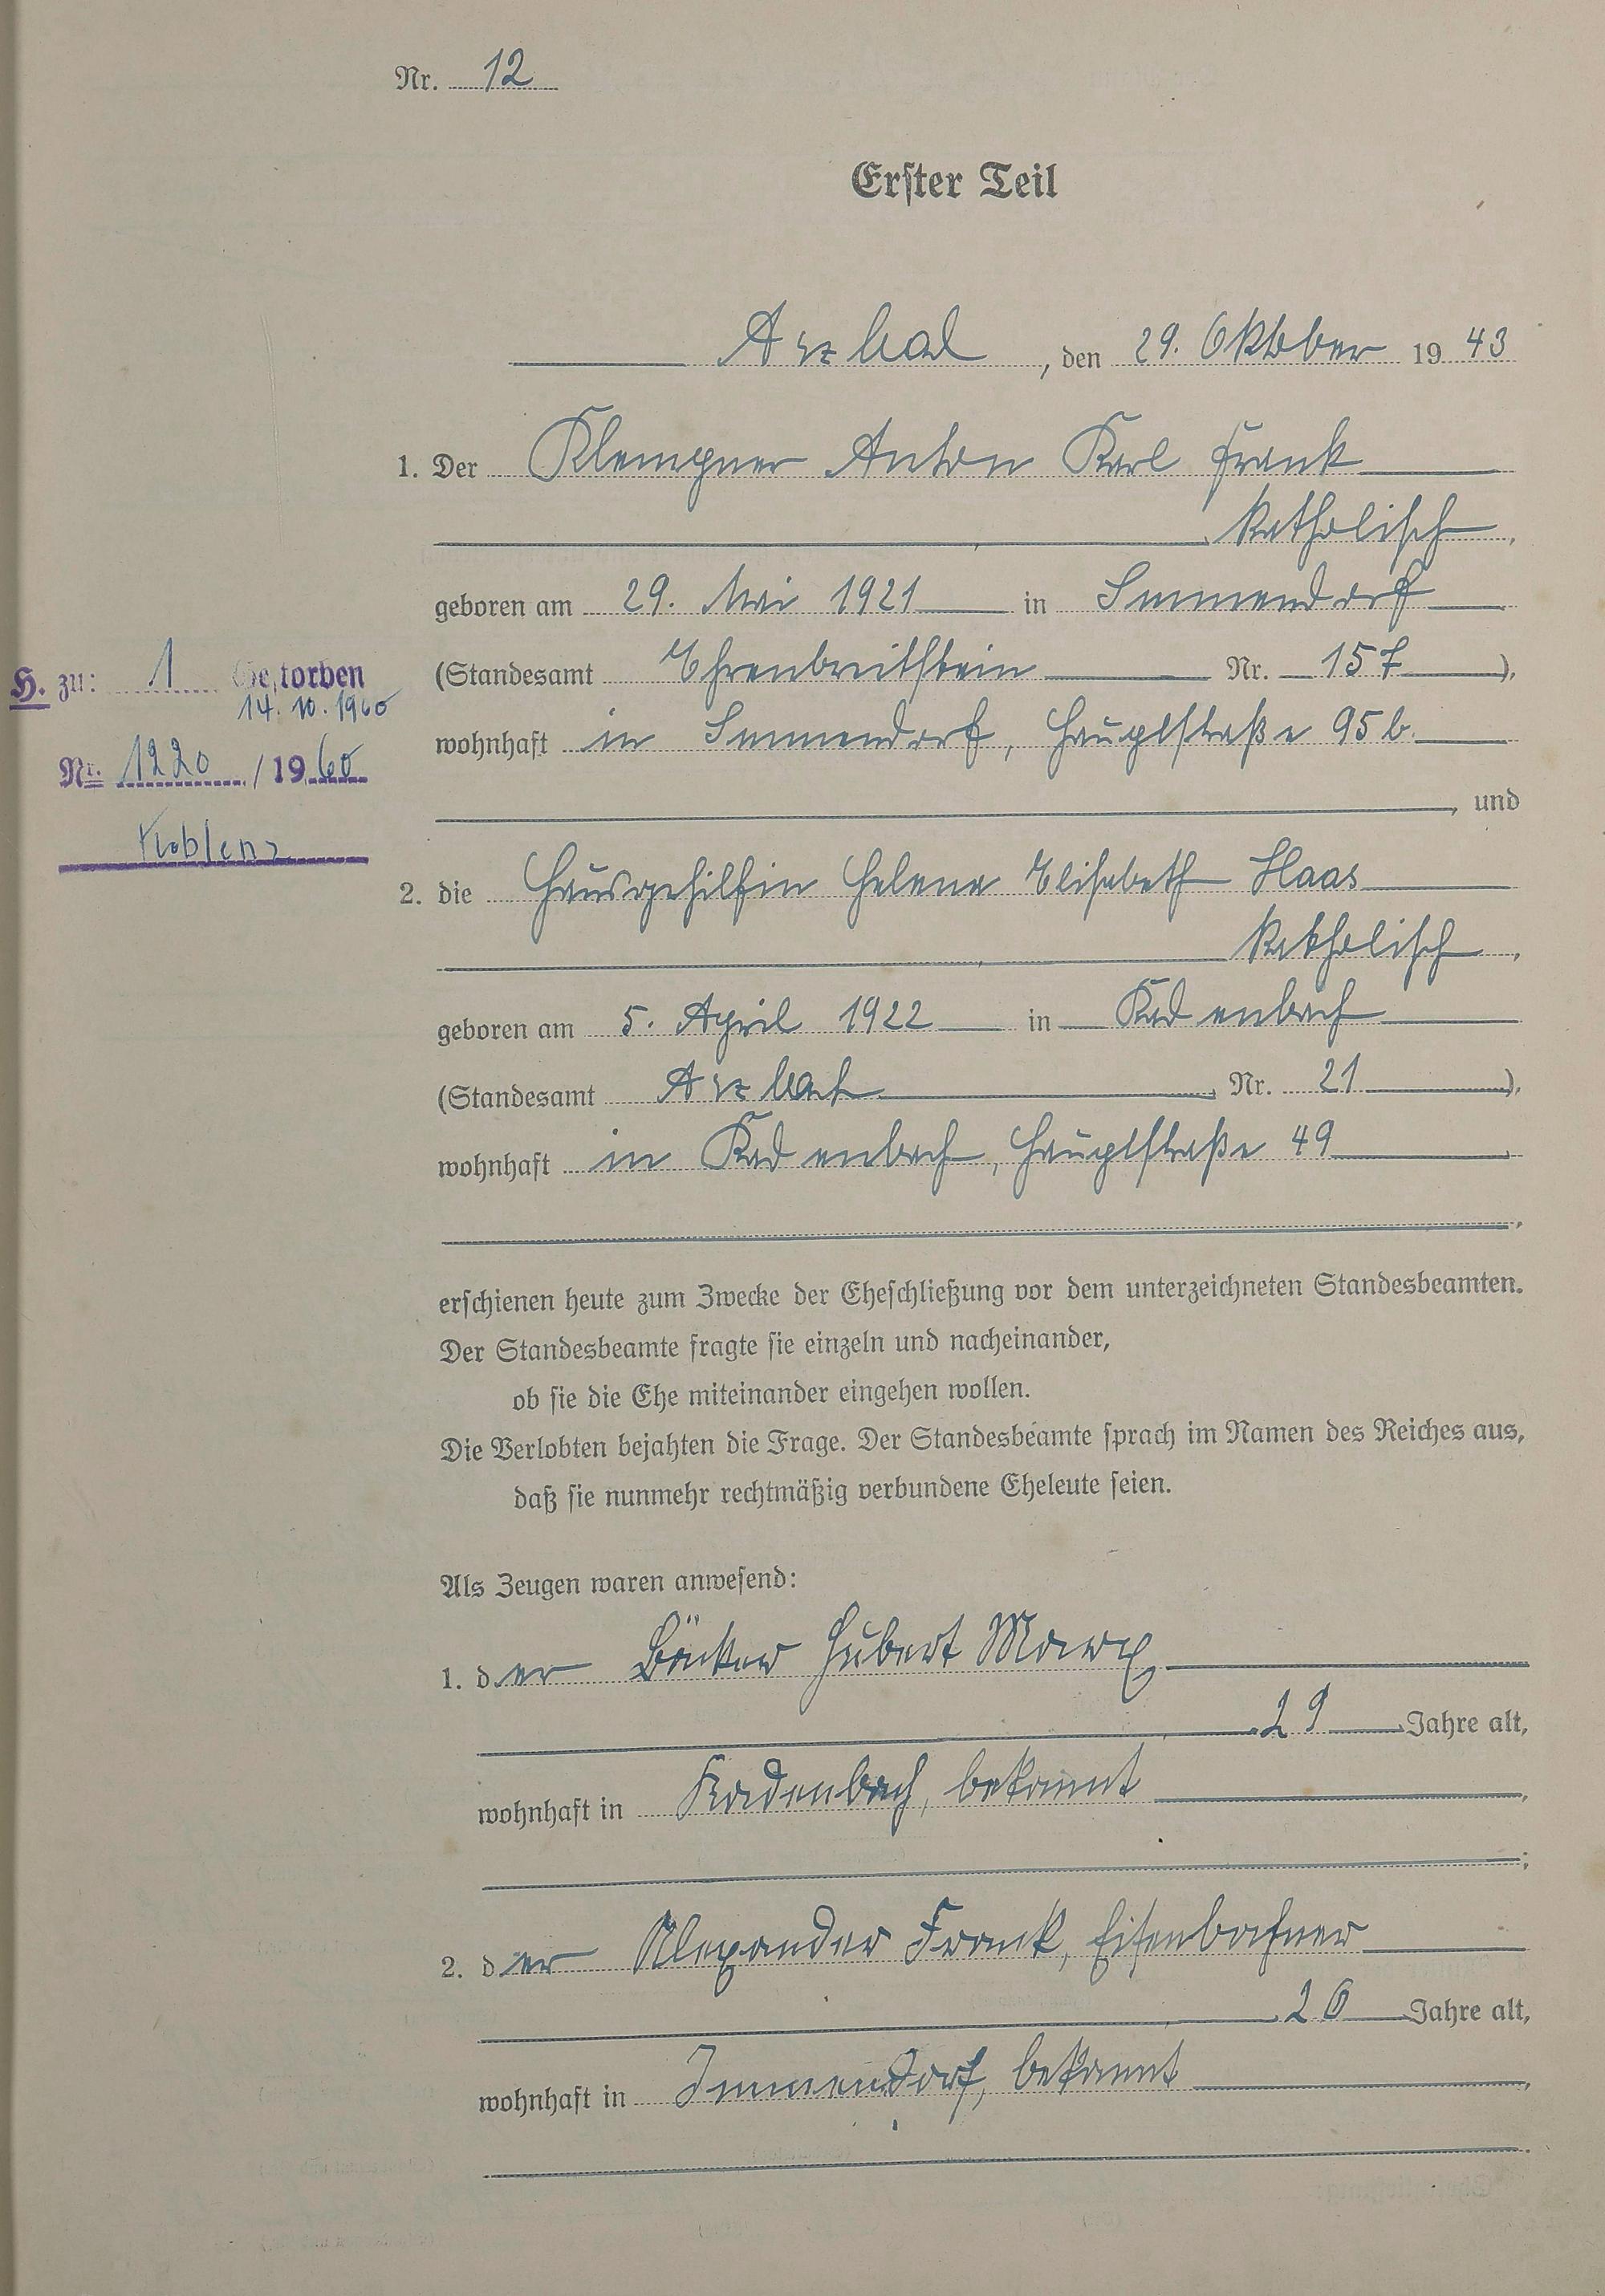 Nr. 12
Erster Teil
Arzbach, den 29. Oktober 1943
1. Der Klempner Anton Karl Frank
katholisch,
geboren am 29. Mai 1921 in Immendorf
(Standesamt Ehrenbreitstein Nr. 157),
wohnhaft in Immendorf, Hauptstraße 95 b.
, und
H. zu: 1 Gestorben
14. 10. 1960
Nr. 1220 / 1960
Koblenz
2. die Hausgehilfin Helena Elisabeth Haas
katholisch,
geboren am 5. April 1922 in Kadenbach
(Standesamt Arzbach Nr. 21),
wohnhaft in Kadenbach, Hauptstraße 49
,
erschienen heute zum Zwecke der Eheschließung vor dem unterzeichneten Standesbeamten.
Der Standesbeamte fragte sie einzeln und nacheinander,
ob sie die Ehe miteinander eingehen wollen.
Die Verlobten bejahten die Frage. Der Standesbeamte sprach im Namen des Reiches aus,
daß sie nunmehr rechtmäßig verbundene Eheleute seien.
Als Zeugen waren anwesend:
1. der Bäcker Hubert Marx
29 Jahre alt,
wohnhaft in Kadenbach, bekannt,
;
2. der Alexander Frank, Eisenbahner
26 Jahre alt,
wohnhaft in Immendorf, bekannt,
.